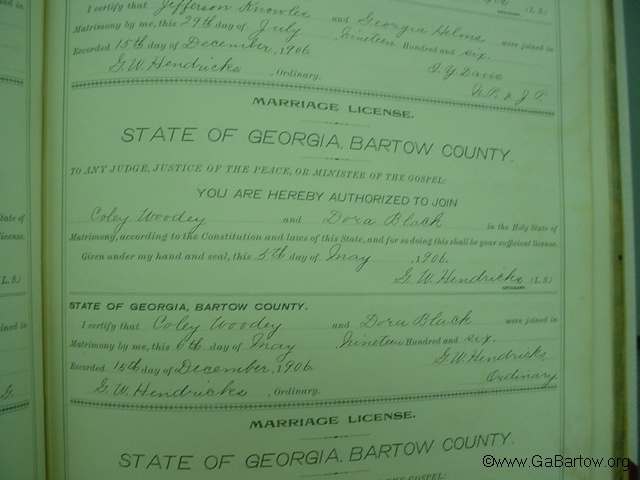 I certify that Jefferson Knowles and Georgia Helms were joined in
Matrimony by me, this 29th day of July Nineteen Hundred and six.
Recorded 15th day of December, 1906. J. Y. Davis
G. W. Hendricks, Ordinary. N.P. & J.P.
MARRIAGE LICENSE.
STATE OF GEORGIA, BARTOW COUNTY.
TO ANY JUDGE, JUSTICE OF THE PEACE, OR MINISTER OF THE GOSPEL:
YOU ARE HEREBY AUTHORIZED TO JOIN
Coley Woodey and Dora Black in the Holy State of
Matrimony, according to the Constitution and laws of this State, and for so doing this shall be your sufficient license.
Given under my hand and seal, this 5th day of May, 1906.
G. W. Hendricks (L. S.)
ORDINARY.
STATE OF GEORGIA, BARTOW COUNTY.
I certify that Coley Woodey and Dora Black were joined in
Matrimony by me, this 6th day of May Nineteen Hundred and six.
Recorded 15th day of December, 1906. G. W. Hendricks
G. W. Hendricks, Ordinary. Ordinary
MARRIAGE LICENSE.
STATE OF GEORGIA, BARTOW COUNTY.
©www.GaBartow.org